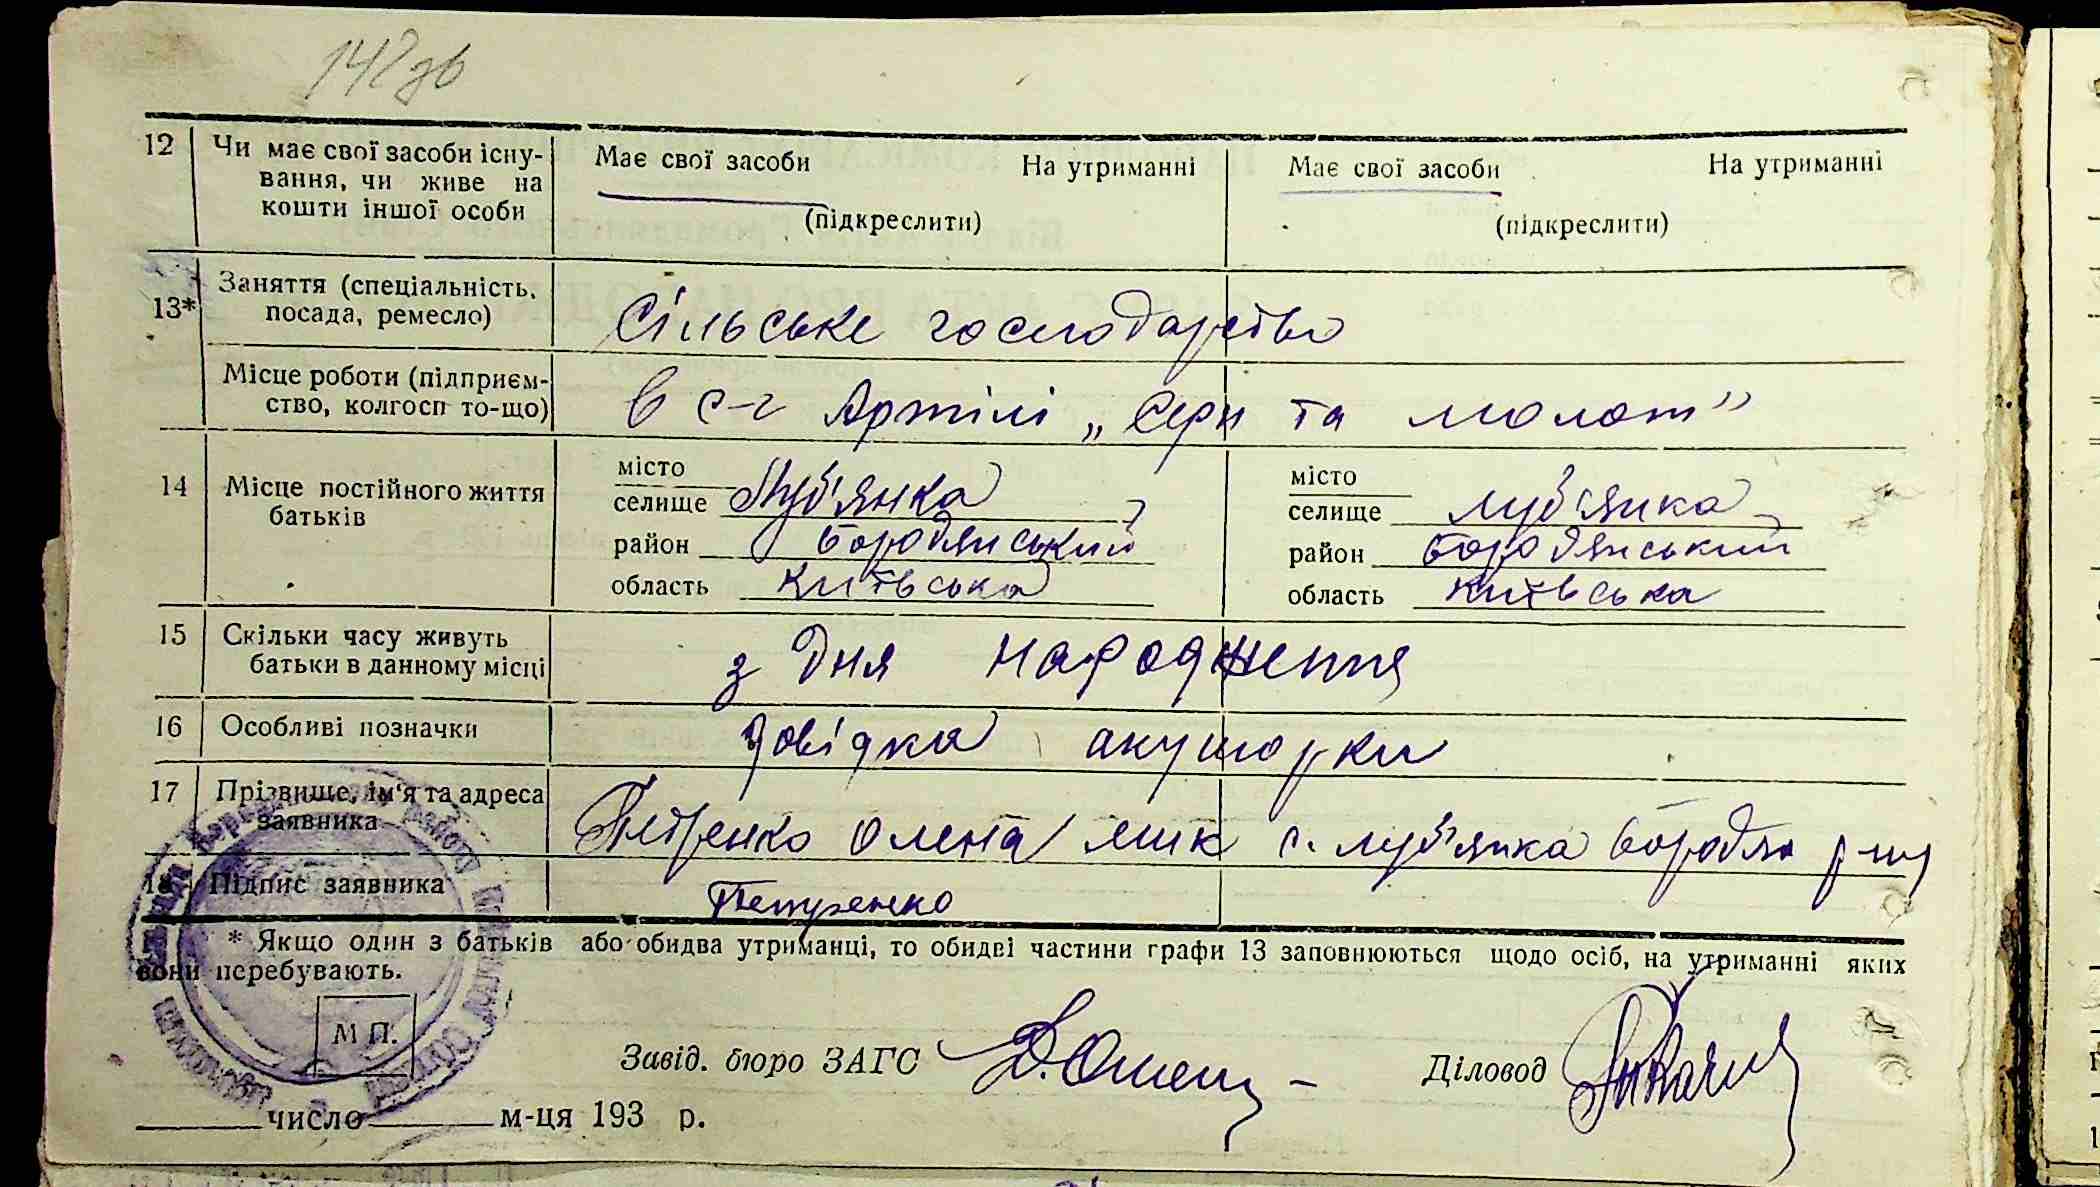 142 зв
12 Чи має свої засоби існу- Має свої засоби На утриманні Має свої засоби На утриманні
вання, чи живе на
кошти іншої особи (підкреслити) (підкреслити)
13* Заняття (спеціальність,
посада, ремесло) Сільське господарство
Місце роботи (підприєм-
ство, колгосп то-що) в с-г Артілі „Серп та молот”
14 Місце постійного життя
батьків
місто
селище Луб'янка
район Бородянський
область Київська
місто
селище Луб'янка
район Бородянський
область Київська
15 Скільки часу живуть
батьки в данному місці з дня народження
16 Особливі позначки довідка акушорки
17 Прізвище, ім'я та адреса
заявника Петренко Олена мик с. Луб'янка Бородян р-ну
18 Підпис заявника Петренко
* Якщо один з батьків або обидва утриманці, то обидві частини графи 13 заповнюються щодо осіб, на утриманні яких
вони перебувають.
М П.
Завід. бюро ЗАГС Діловод
число м-ця 193 р.